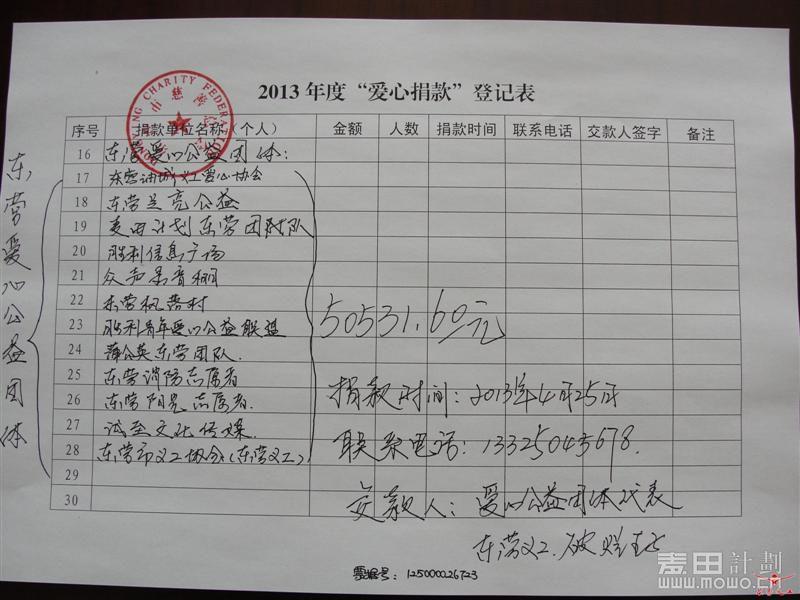 DONGYING CHARITY FEDERATION
2013 年度“爱心捐款”登记表
序号 捐款单位名称（个人） 金额 人数 捐款时间 联系电话 交款人签字 备注
16 东营爱心公益团体：
17 东营油城义工爱心协会
18 东营星亮公益
19 麦田计划东营团队
20 胜利信息广场
21 众声录音棚
22 东营枫叶村
23 胜利青年爱心公益联盟
24 蒲公英东营团队.
25 东营消防志愿者
26 东营阳光志愿者.
27 诚至文化传媒.
28 东营市义工协会(东营义工)
29
30
东营爱心公益团体
50531.60元
捐款时间：2013年4月25日
联系电话：13325045678.
交款人：爱心公益团体代表
东营义工.
票据号：125000026723
麦田計劃
www.mowo.cn